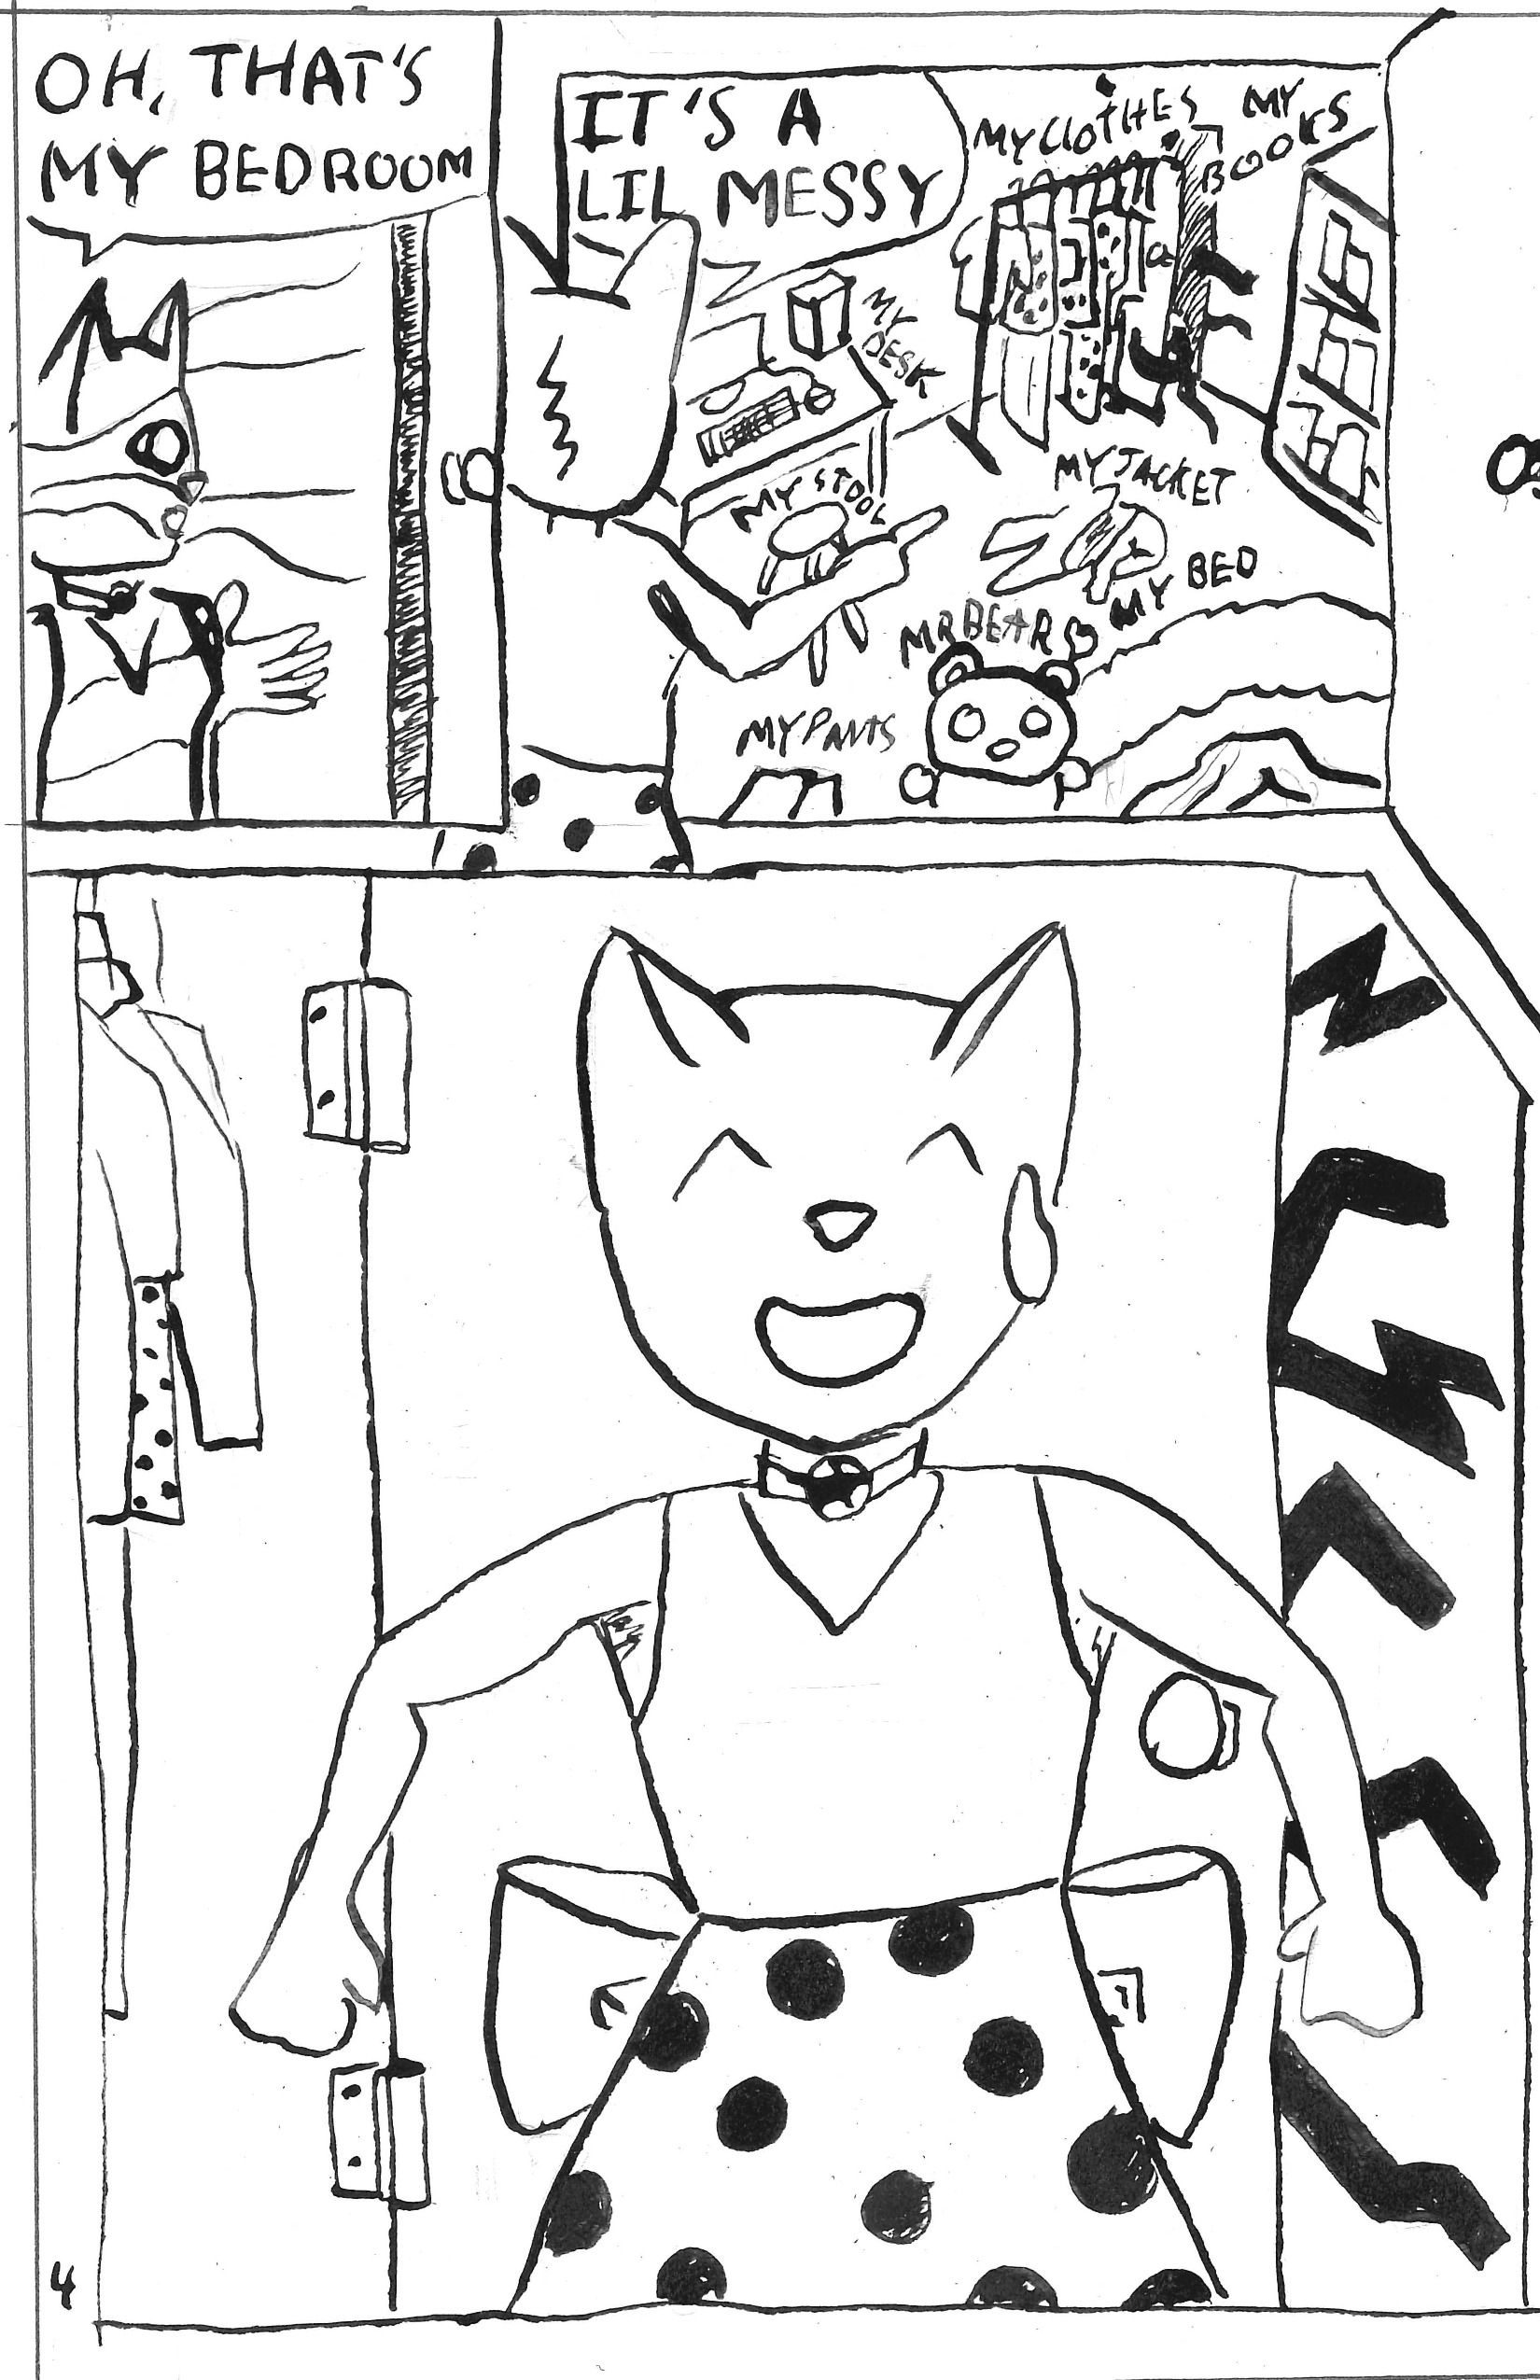 OH, THAT'S
MY BEDROOM
IT'S A
LIL MESSY
MY CLOTHES
MY
BOOKS
MY
DESK
MY STOOL
MY JACKET
MY BED
MR BEARS
MY PANTS
4